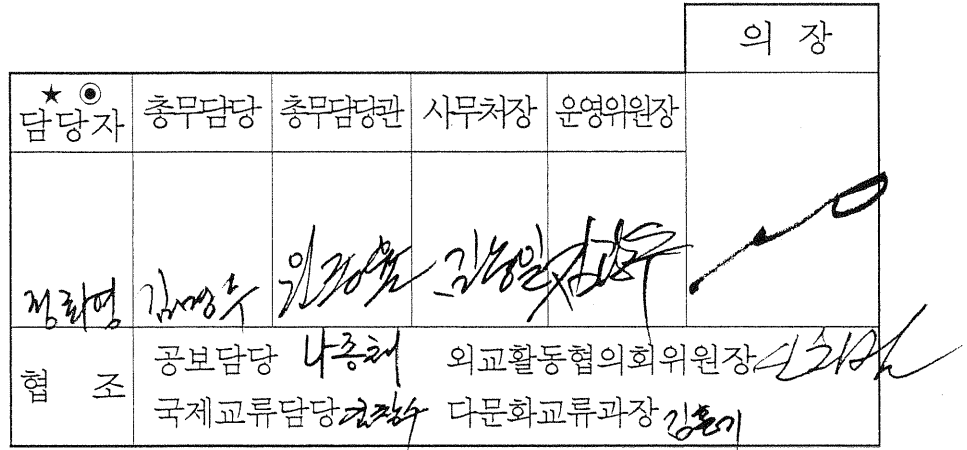 의 장
★ ◉
담당자 총무담당 총무담당관 사무처장 운영위원장
정희영 김명수
협 조 공보담당 나종채 외교활동협의회위원장
국제교류담당 다문화교류과장 김흥기